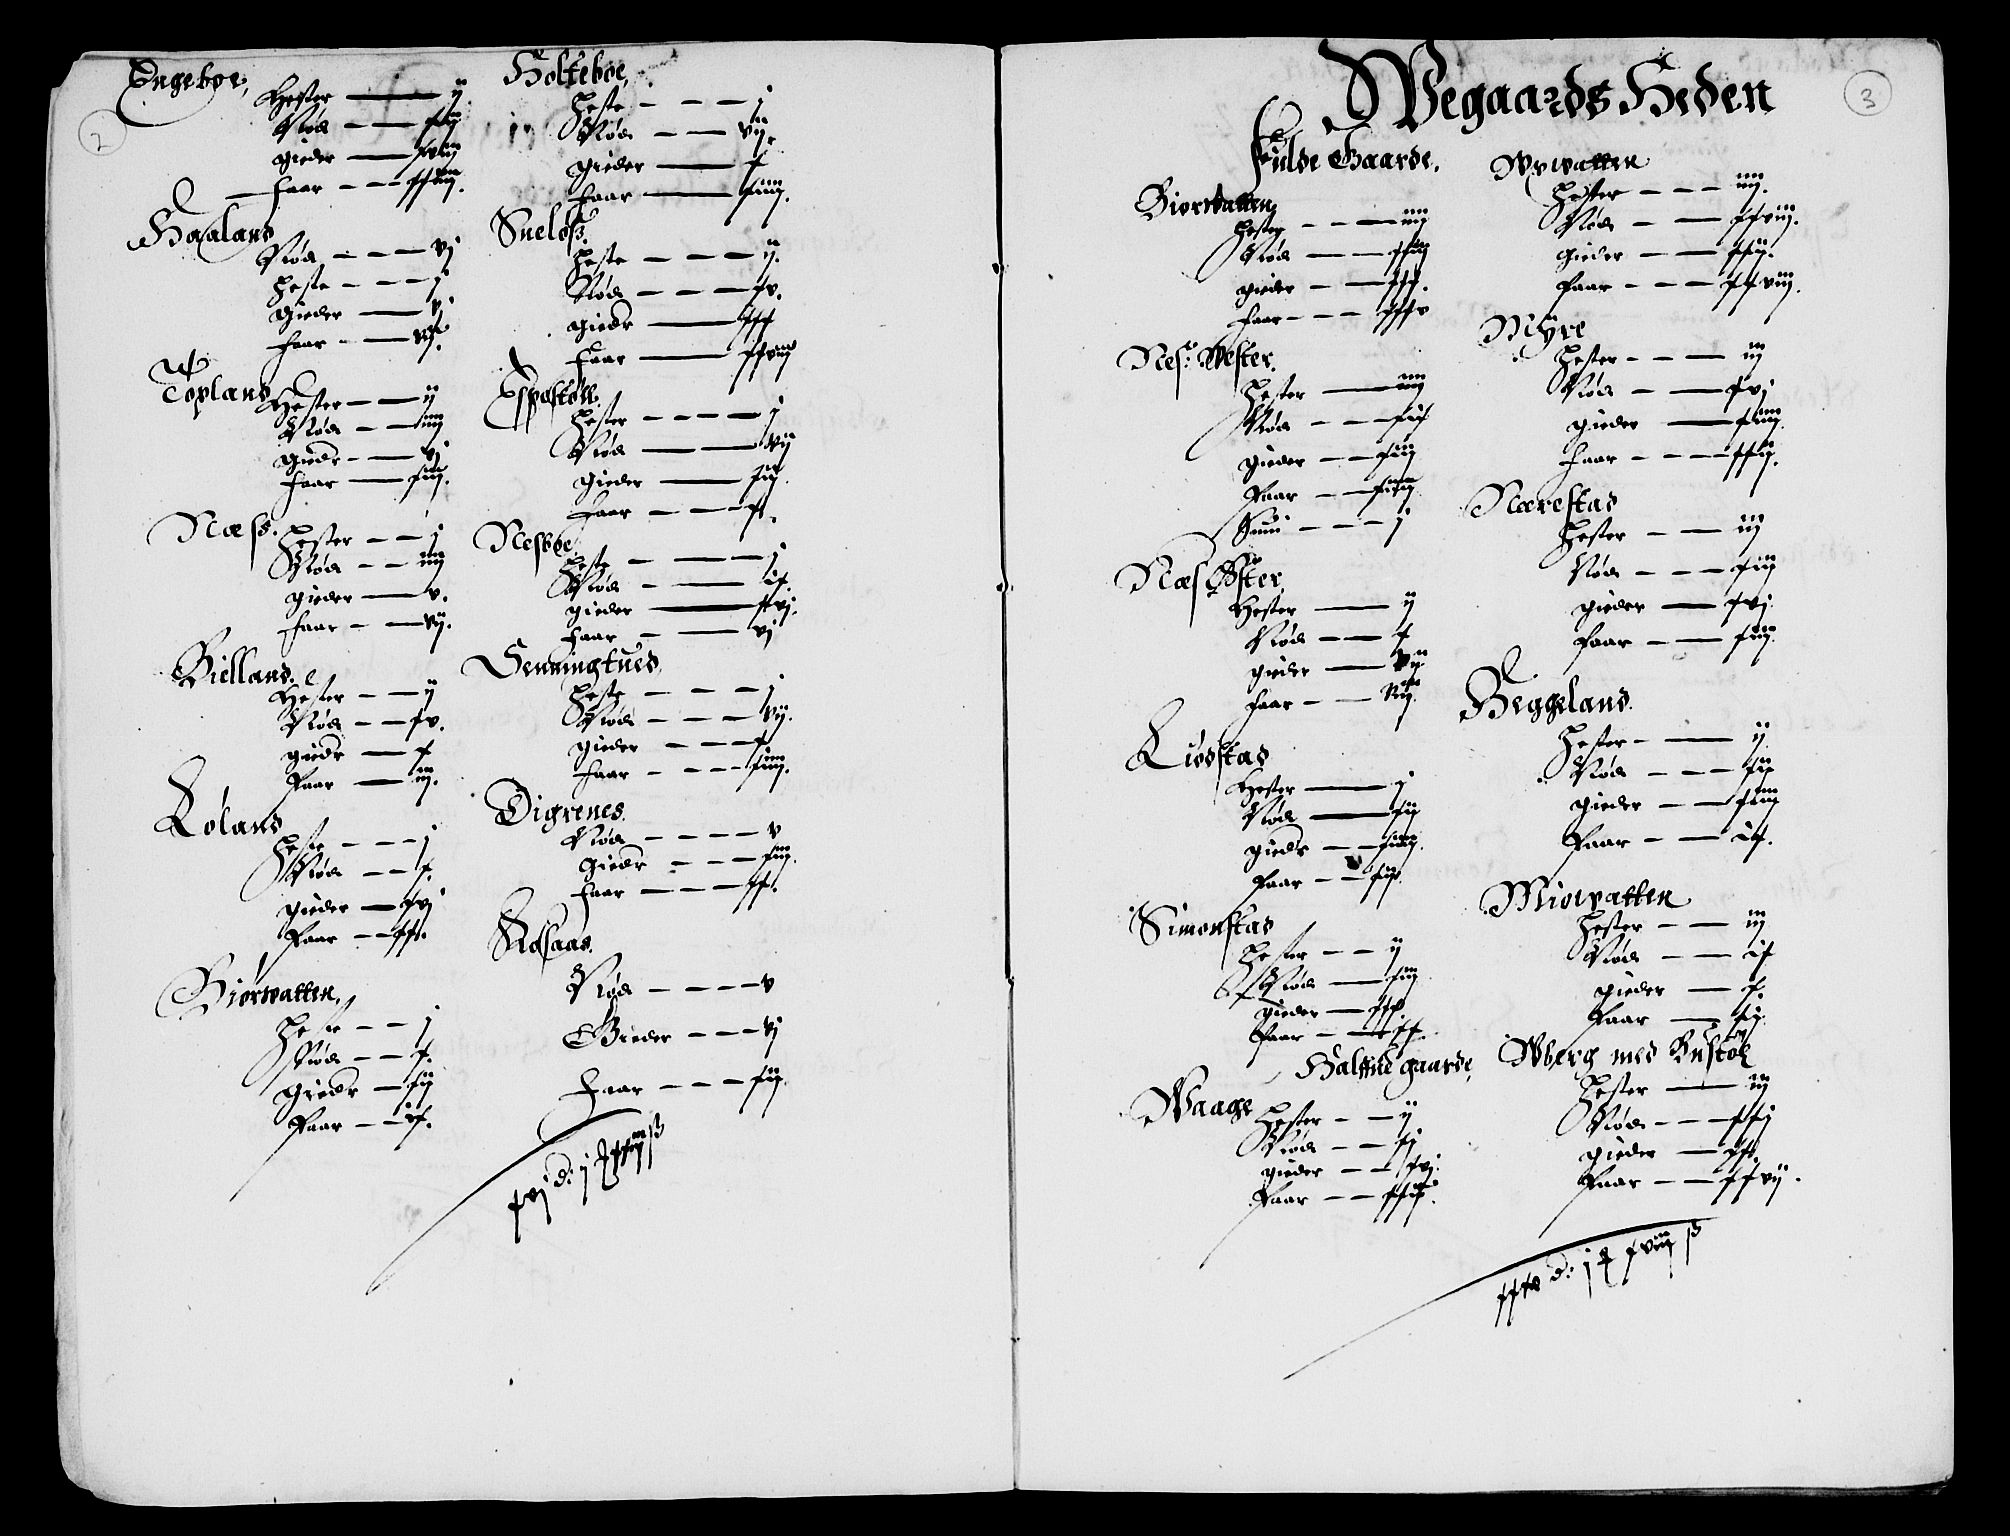 2
Engeboe,
Hester — ij
Nød — — xij
gieder — xviij
faar — — xxiiij.
Haaland
Nød — — — vj
heste — — — j
gieder — vj
faar — — vij.
Topland
Hester — — ij
Nød — — iiij
giedr — — vj
faar — xiij.
Næss.
hester — — j
Nød — — iiij
gieder — v.
faar — — vij.
Bielland.
Hester — — ij
Nød — — xv.
giedr — x
Faar — iij.
Røland
heste — — — j
Nød — — x.
gieder — xvj
Faar — — xx.
Biørvatten,
heste — — j
Nød — — x.
giedr — xij
Faar — — ix.
Holteboe,
heste — — — j
Nød — — vij.
gieder — x
faar — xiiij.
Sneløss.
heste — — — ij.
Nød — — — xv.
giedr — xxx
Faar — xxviij
Espestøll.
hester — — — — j
Nød — — vij
gieder — xij.
Faar — — — x.
Nesboe.
heste — — j
Nød — — ix.
gieder — xvj.
faar — — vj
Henningtued,
heste — — — — j
Nød — — — — vij.
gieder — — — x
faar — — — — xiiij.
Digrenes.
Nød — — — — v
Giedr — — — xiij.
faar — — — xx.
Aasaas.
Nød — — — — v
Gieder — — — vj
faar — — — xij.
3
Wegaards Heden
Fulde Gaarde.
Giorvatten,
hester — — — iiij
Nød — — xxiij
gieder — — xxx.
faar — — — xxxv
Nes: Wester.
hester — iiij
Nød — — xix
gieder — — xiij
Faar — — xiiij
Suin — — — j
Næs Øster,
Hester — ij
Nød — — x
gieder — vij.
faar — — viij.
Liødstad
Hester — j
Nød — xij
giedr — — xiiij.
faar — — xix.
Simonstad
hester — — ij
Nød — xiij
gieder — xxx.
Faar — — xx.
Halffue gaarde,
Waage
hester — — ij
Nød — — xj
gieder — — xvj.
Faar — — xxij.
Wrvatten
hester — — — iiij.
Nød — — xxviij.
gieder — — xxij.
faar — — — xxviij.
Myre
hester — — — iij
Nød — — xvj
gieder — xiiij.
faar — — — xxiij.
Nærestad
hester — — iij
Nød — — — xiij
gieder — xvj.
faar — — xiij.
Beggeland.
hester — — ij
Nød — — — xij
gieder — — xiiij
Faar — — ix.
Miovatten
hester — — iij
Nød — — ix
gieder — x.
Faar — xij.
Wberg med Bustøl
hester — iij
Nød — — — xxj
gieder — xx.
Faar — — xxvij.